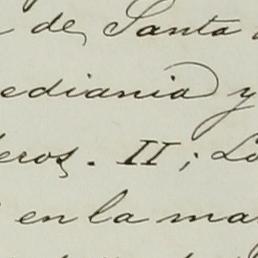 de Santa
ediania y
eros. II; Lo
en la ma